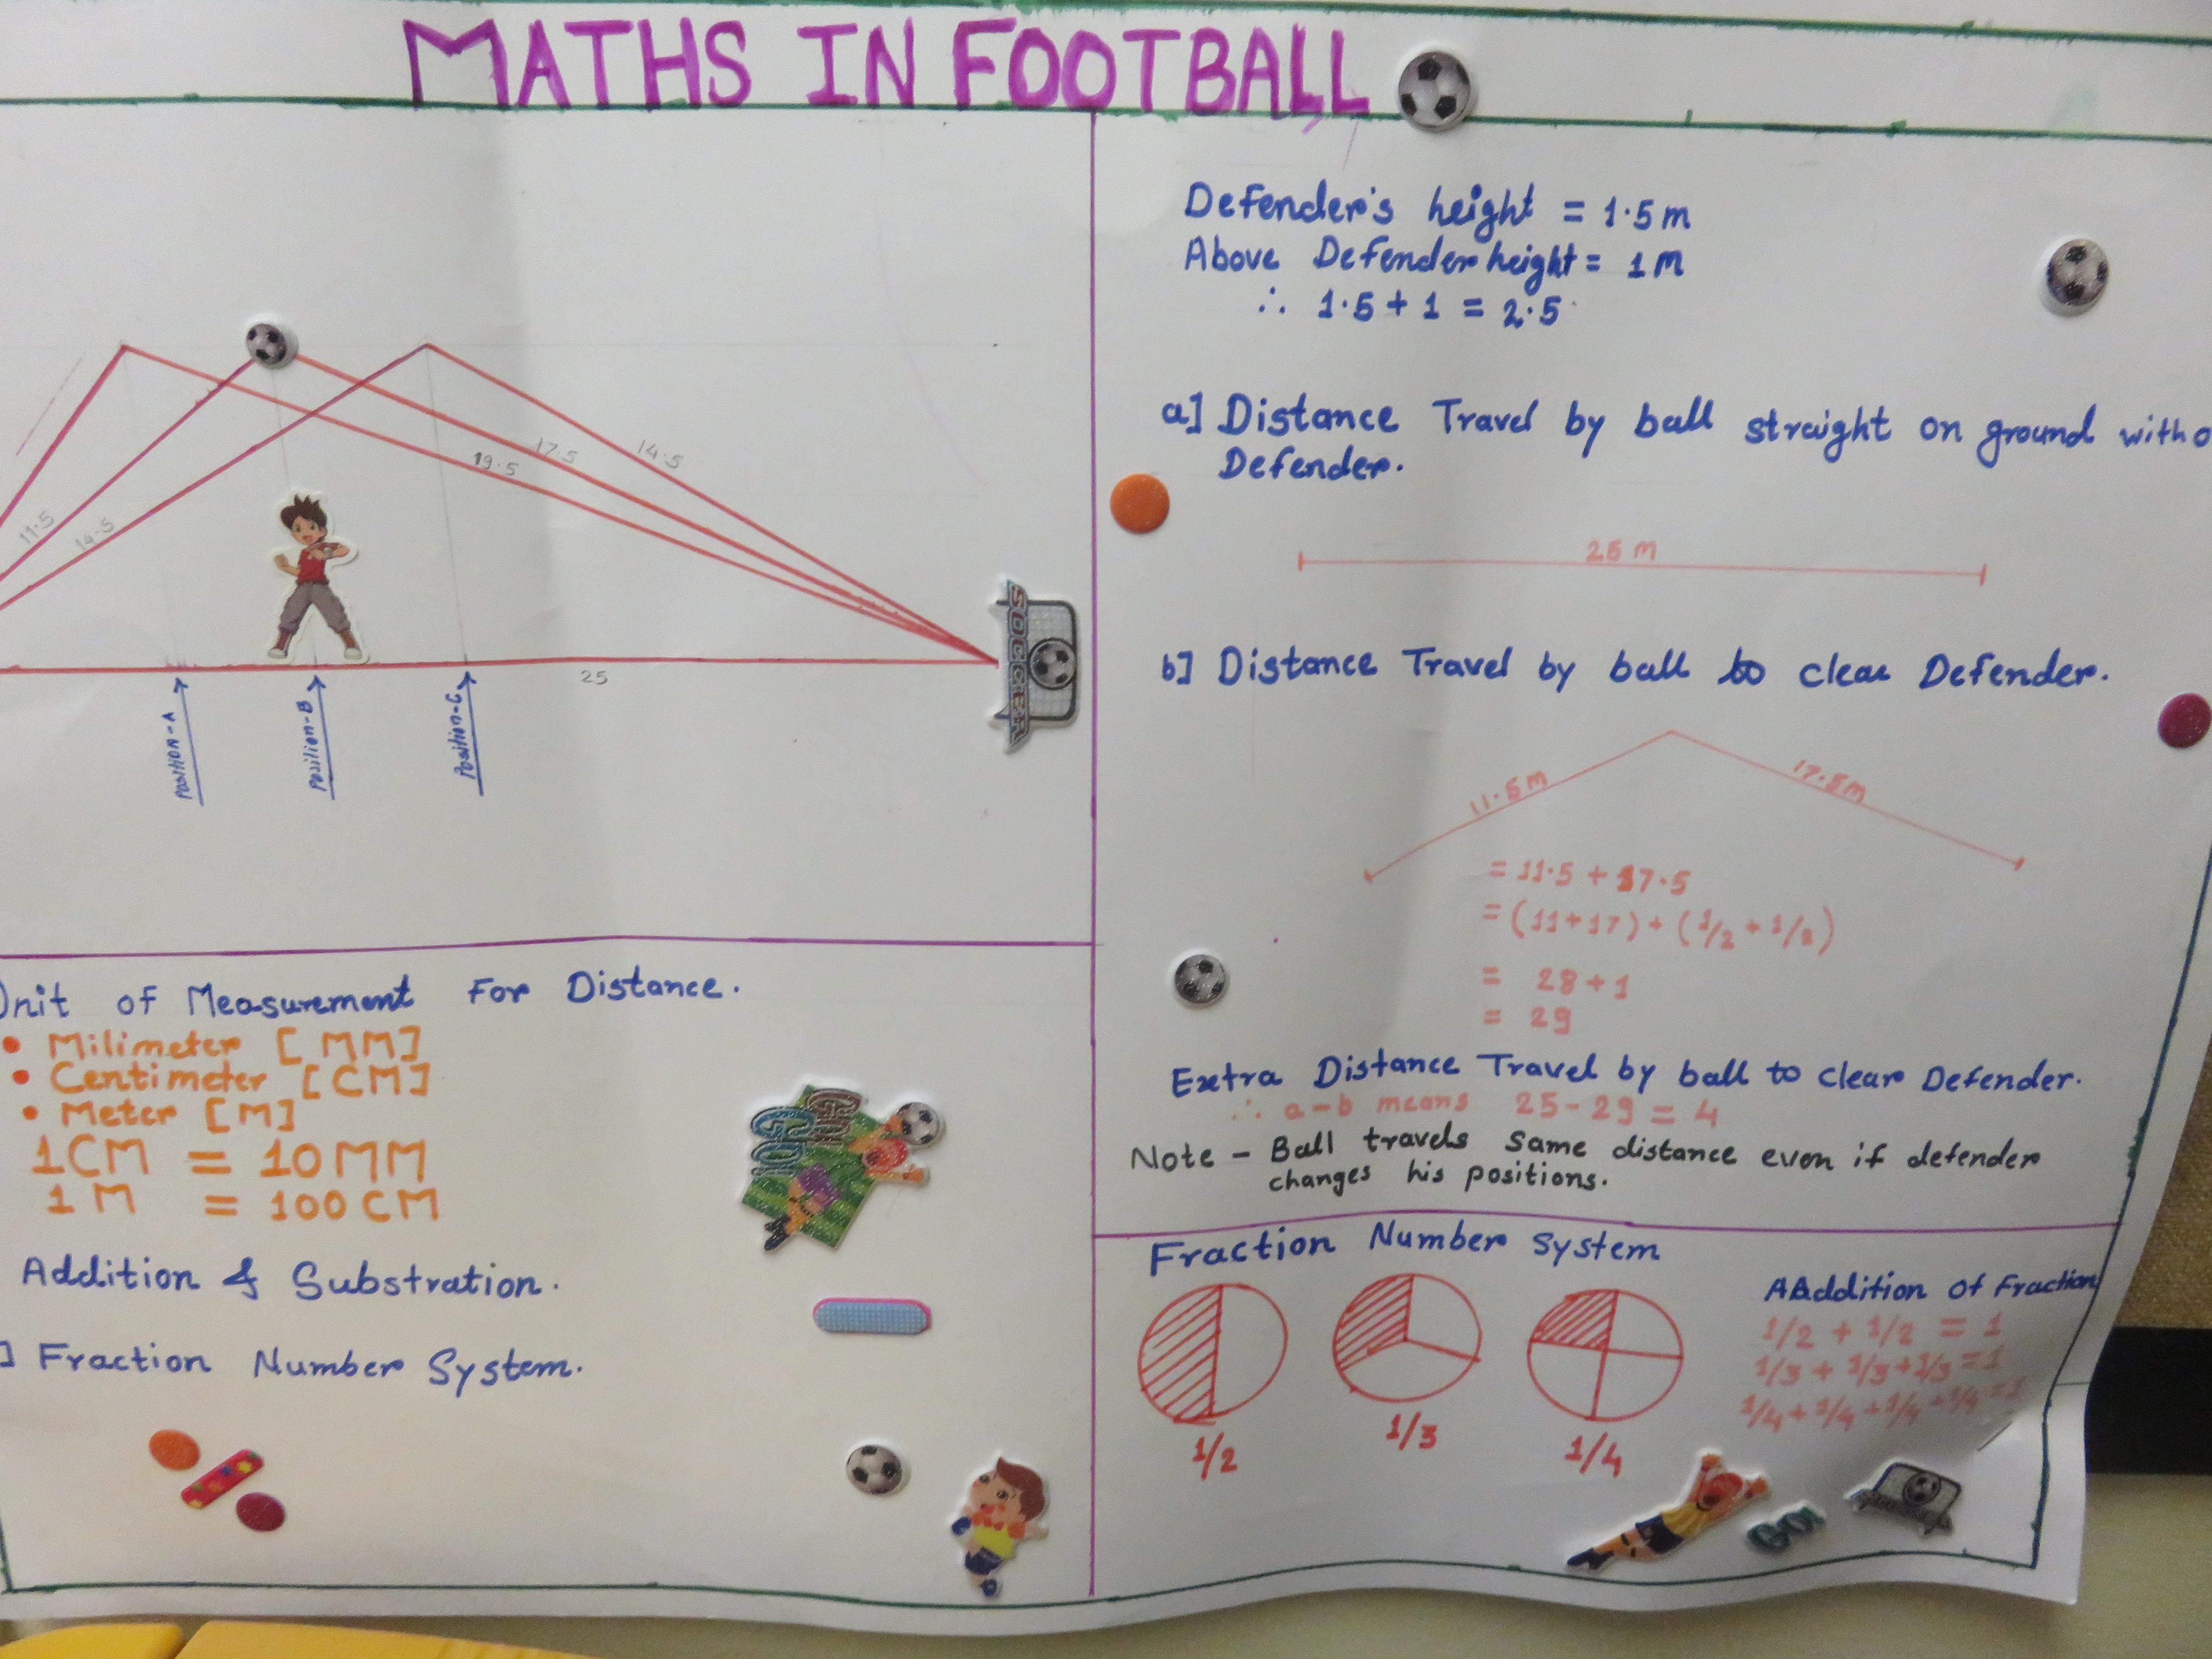 MATHS IN FOOTBALL
11.5
14.5
19.5
17.5
14.5
25
Position-A
Position-B
Position-C
SOCCER
Defender's height = 1.5 m
Above Defender height = 1 M
∴ 1.5 + 1 = 2.5
a] Distance Travel by ball straight on ground witho
Defender.
25 m
b] Distance Travel by ball to clear Defender.
11.5 m
17.5 m
= 11.5 + 17.5
= (11+17) + (1/2 + 1/2)
= 28 + 1
= 29
Extra Distance Travel by ball to clear Defender.
∴ a-b means 25 - 29 = 4
Note - Ball travels same distance even if defender
changes his positions.
Unit of Measurement For Distance.
• Milimeter [MM]
• Centimeter [CM]
• Meter [M]
1CM = 10MM
1M = 100CM
Addition & Substration.
] Fraction Number System.
Fraction Number System
1/2
1/3
1/4
AAddition of Fraction
1/2 + 1/2 = 1
1/3 + 1/3 + 1/3 = 1
1/4 + 1/4 + 1/4 + 1/4 = 1